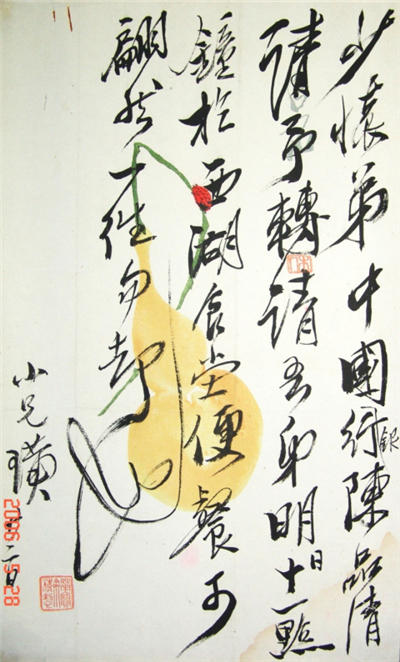 少懷弟中國銀行陳品清
請予轉請吾弟明日十一點
鐘於西湖食堂便餐可
翩然一往勿却也
小兄璜
二日
2006 5 28